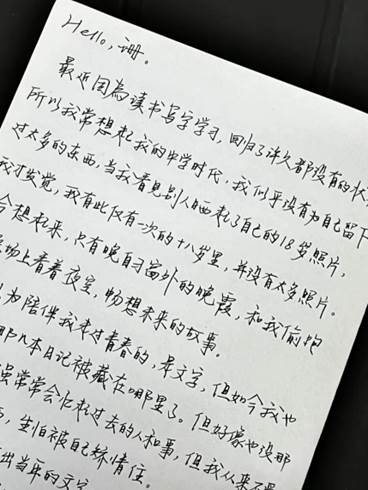 Hello, 珊。
最近因為读书写字学习，回归了许久都没有的状
所以我常想起我的中学时代，我们乎没有为自己留下
过太多的东西，当我看见别人晒起了自己的18岁照片，
我才发觉，我有此仅有一次的十八岁里，并没有太多照片。
今想起来，只有晚自习窗外的晚霞，和我偷抱
场上看着夜空，畅想未来的故事。
为陪伴我走过青春的，是文字，但如今我也
那几本日记被藏在哪里了。但好像也没那
常常会忆起过去的人和事，但我从来不
，生怕被自己矫情住
出当年的文字